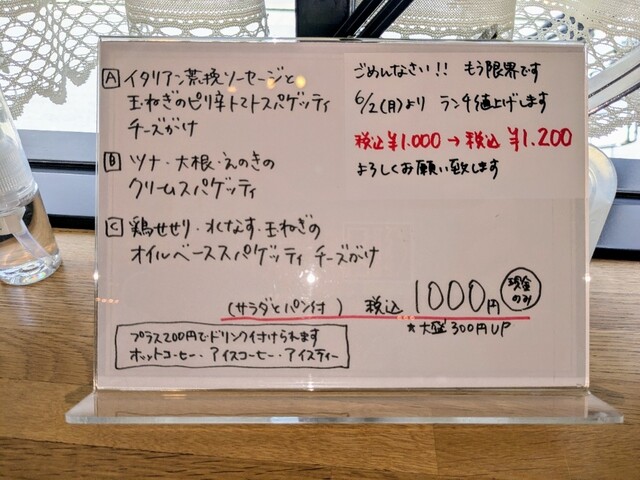 A イタリアン荒挽ソーセージと
玉ねぎのピリ辛トマトスパゲッティ
チーズがけ
B ツナ・大根・えのきの
クリームスパゲッティ
C 鶏せせり・水なす・玉ねぎの
オイルベーススパゲッティ チーズがけ
(サラダとパン付) 税込 1000円 現金のみ
★大盛300円UP
プラス200円でドリンク付けられます
ホットコーヒー・アイスコーヒー・アイスティー
ごめんなさい!! もう限界です
6/2(月)より ランチ値上げします
税込¥1.000→税込 ¥1.200
よろしくお願い致します